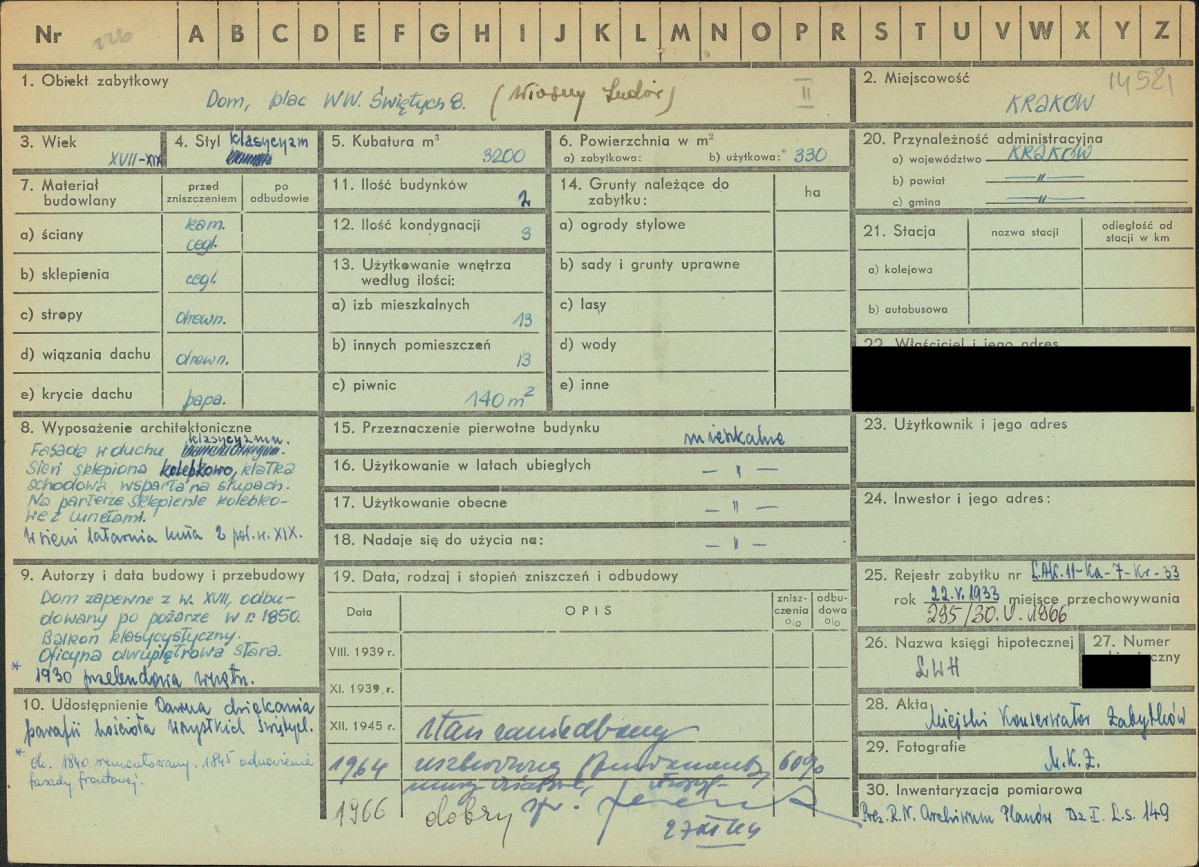 Nr 226 A B C D E F G H I J K L M N O P R S T U V W X Y Z
1. Obiekt zabytkowy
Dom, plac WW. Świętych 8. (Wiosny Ludów) II
2. Miejscowość 14581
KRAKÓW
3. Wiek
XVII-XIX
4. Styl klasycyzm
5. Kubatura m³
3200
6. Powierzchnia w m²
a) zabytkowa: b) użytkowa: 330
20. Przynależność administracyjna
a) województwo KRAKÓW
b) powiat —„—
c) gmina —„—
7. Materiał budowlany
przed zniszczeniem
po odbudowie
a) ściany kam. cegl.
b) sklepienia cegl.
c) stropy drewn.
d) wiązania dachu drewn.
e) krycie dachu papa.
11. Ilość budynków 2
12. Ilość kondygnacji 3
13. Użytkowanie wnętrza według ilości:
a) izb mieszkalnych 13
b) innych pomieszczeń 13
c) piwnic 140 m²
14. Grunty należące do zabytku: ha
a) ogrody stylowe
b) sady i grunty uprawne
c) lasy
d) wody
e) inne
21. Stacja
nazwa stacji
odległość od stacji w km
a) kolejowa
b) autobusowa
22. Właściciel i jego adres
8. Wyposażenie architektoniczne
klasycyzm.
Fasada w duchu
Sień sklepiona kolebkowo, klatka
schodowa wsparta na słupach.
Na parterze sklepienie kolebko-
we z lunetami.
W sieni latarnia kuta 2 poł. w. XIX.
15. Przeznaczenie pierwotne budynku mieszkalne
16. Użytkowanie w latach ubiegłych — „ —
17. Użytkowanie obecne — „ —
18. Nadaje się do użycia na: — „ —
23. Użytkownik i jego adres
24. Inwestor i jego adres:
9. Autorzy i data budowy i przebudowy
Dom zapewne z w. XVII, odbu-
dowany po pożarze w r. 1850.
Balkon klasycystyczny.
Oficyna dwupiętrowa stara.
* 1930 przebudowa wnętrz.
10. Udostępnienie Dawna dziekania
parafii kościoła Wszystkich Świętych.
* ok. 1840 remontowany. 1845 odnowienie
fasady frontowej.
19. Data, rodzaj i stopień zniszczeń i odbudowy
Data
OPIS
zniszczenia %
odbudowa %
VIII. 1939 r.
XI. 1939 r.
XII. 1945 r. stan zaniedbany
1964 uszkodzone fundamenty, 60%
1966 dobry
25. Rejestr zabytku nr L.AK.11-Ka-7-Kr-33
rok 22.V.1933 miejsce przechowywania
295/30.V.1966
26. Nazwa księgi hipotecznej
LWH
27. Numer
28. Akta Miejski Konserwator Zabytków
29. Fotografie
M.K.Z.
30. Inwentaryzacja pomiarowa
Prez. R.N. Archiwum Planów Dz I. L.s. 149